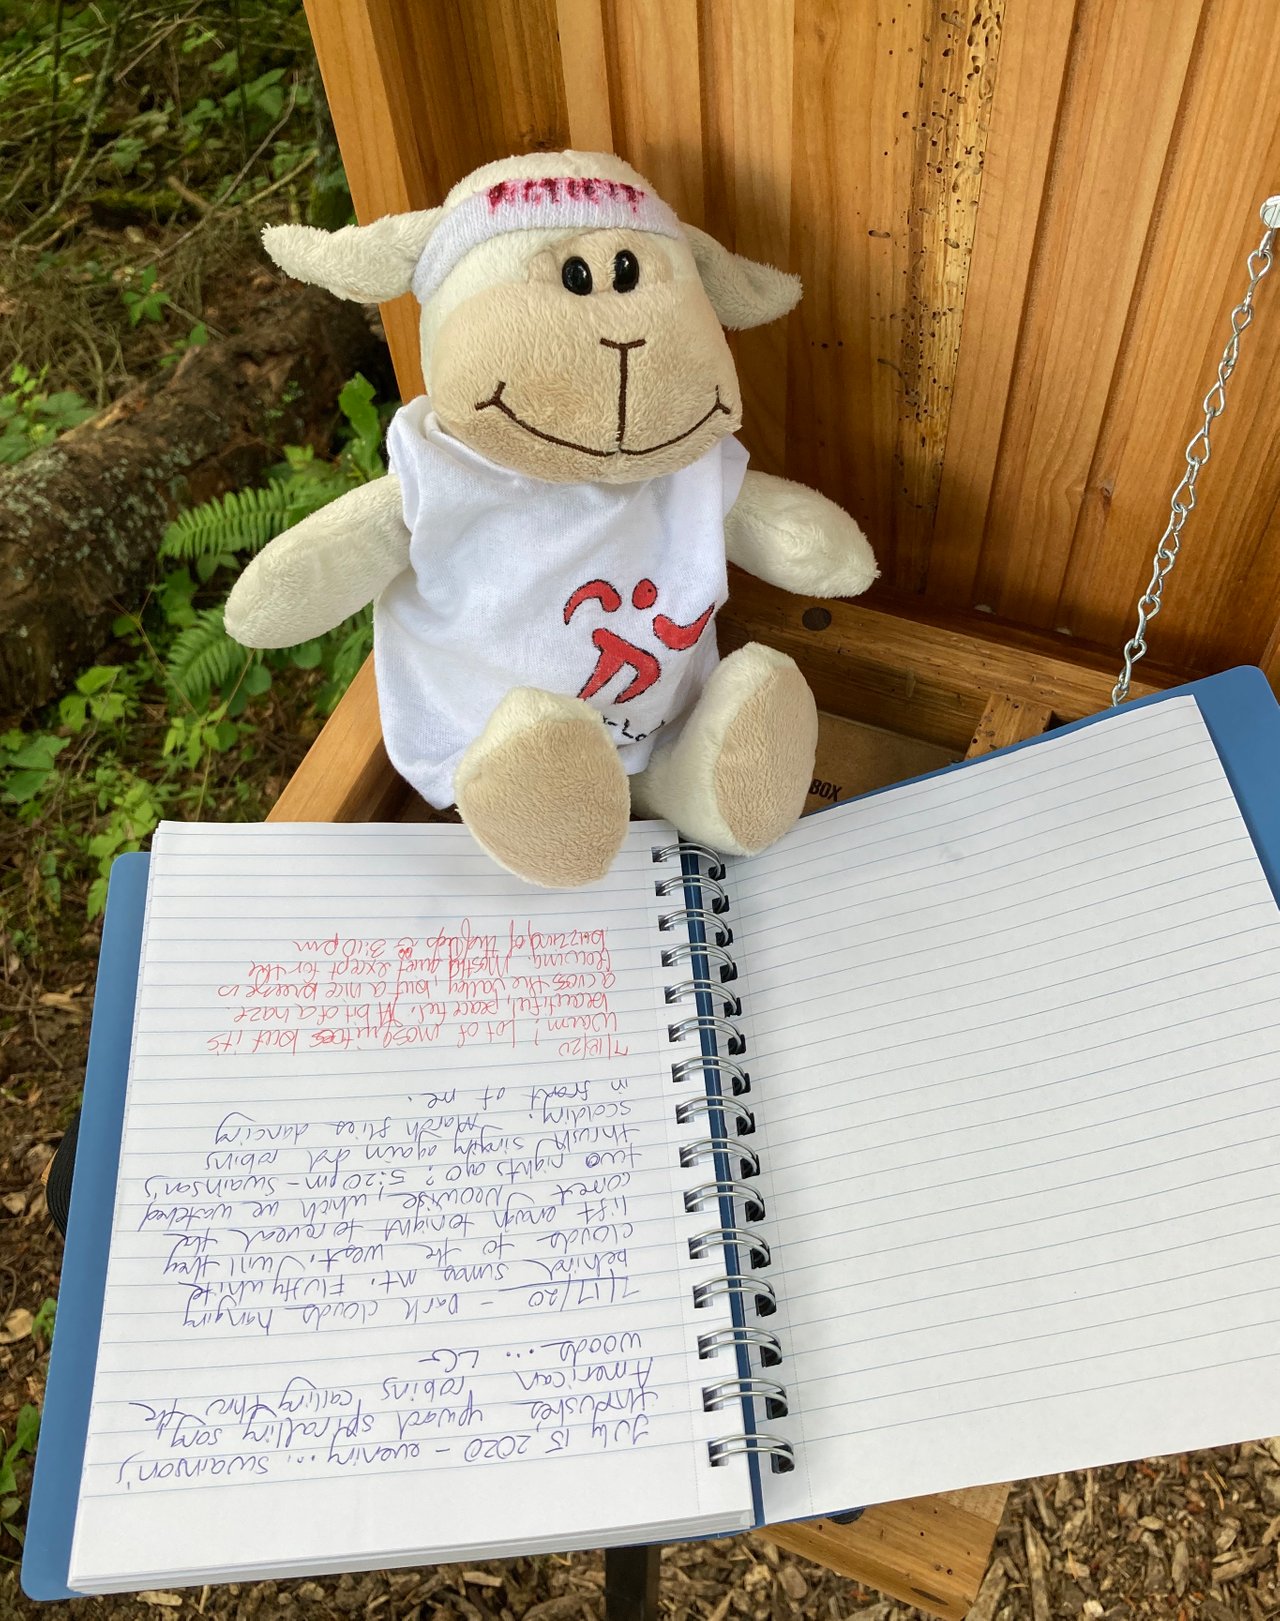 ACTIFIT
BOX
July 15, 2020 - evening... Swainson's
thrushes upward spiralling song
American robins calling thru the
woods... LG
7/17/20 - Dark clouds hanging
behind Sumas Mt. Fluffy white
clouds to the west. Will they
lift enough tonight to reveal the
comet Neowise, which we watched
two nights ago? 5:20pm - Swainson's
thrush singing again and robins
scolding. March flies dancing
in front of me.
7/18/20
Warm! Lot of mosquitoes but it's
beautiful, peaceful. A bit of a haze
across the valley, but a nice breeze is
flowing. Mostly quiet except for the
buzzing of the bugs @ 3:10pm